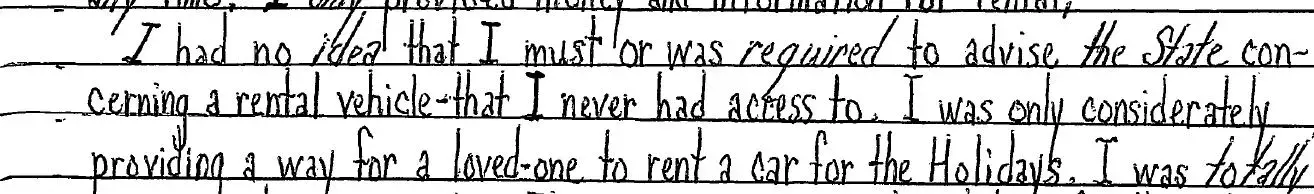 any time. I only provided money and information for rental,
I had no idea that I must or was required to advise the State con-
cerning a rental vehicle-that I never had access to. I was only considerately
providing a way for a loved-one to rent a car for the Holidays. I was totally